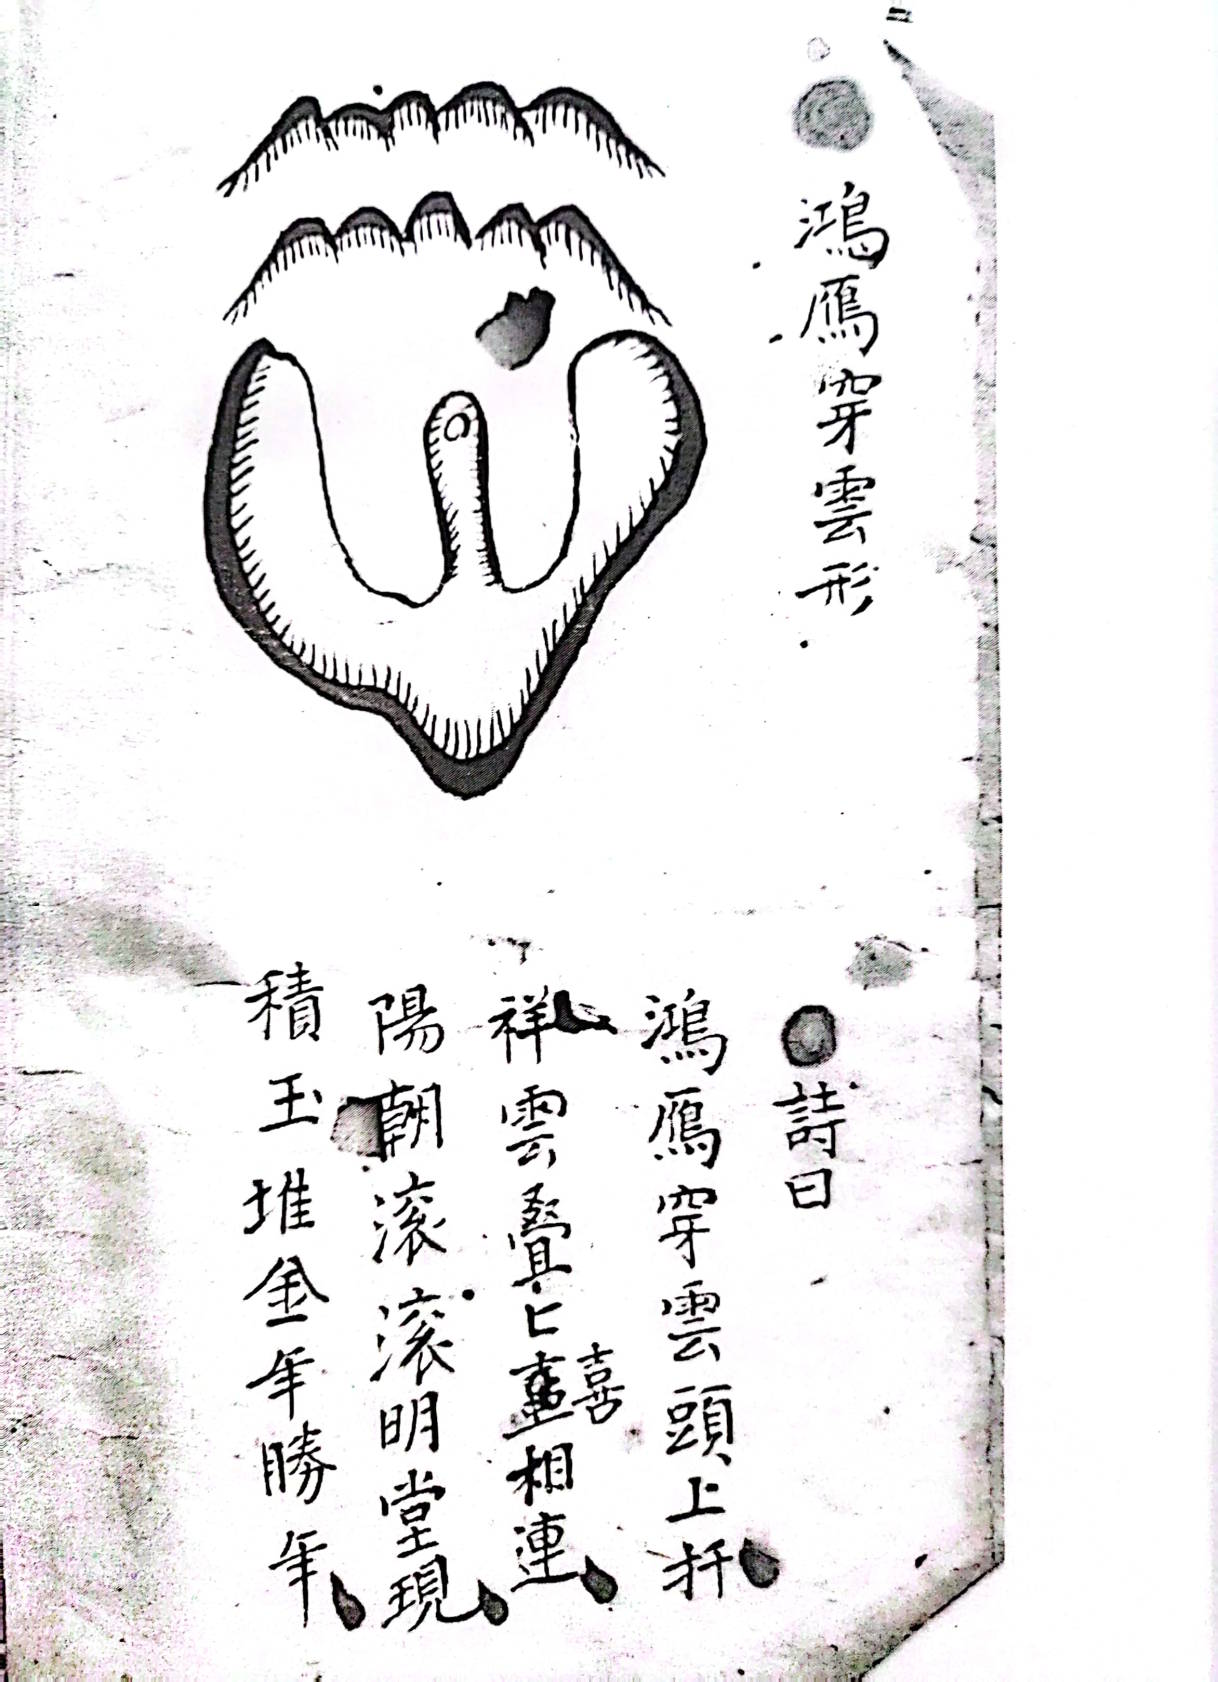 鴻鴈穿雲形
詩曰
鴻鴈穿雲頭上扦
祥雲疊匕喜相連
陽朝滚滚明堂現
積玉堆金年勝年